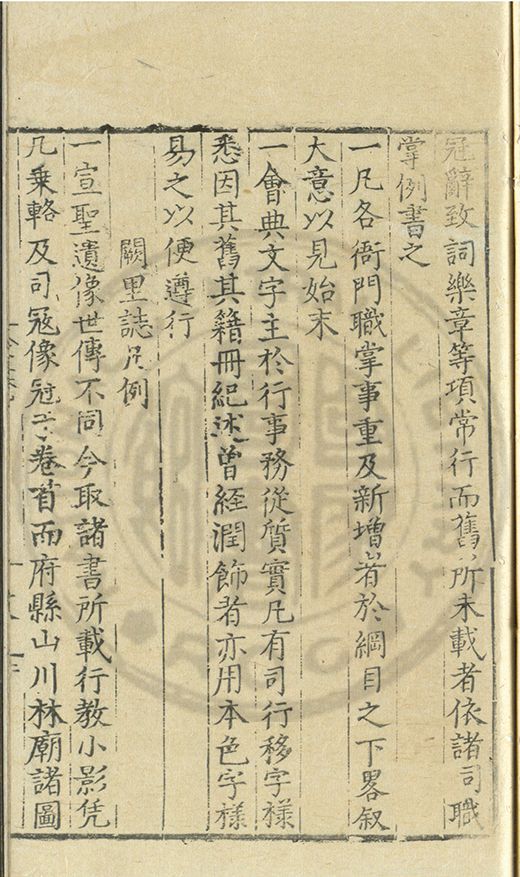 冠辭致詞樂章等項常行而舊所未載者依諸司職
掌例書之
一凡各衙門職掌事重及新增者於綱目之下畧叙
大意以見始末
一會典文字主於行事務從質實凡有司行移字樣
悉因其舊其籍冊紀述曽経潤飾者亦用本色字樣
易之以便遵行
闕里誌凡例
一宣聖遺像世傳不同今取諸書所載行教小影凭
几乗輅及司冦像冠于卷首而府縣山川林廟諸圖